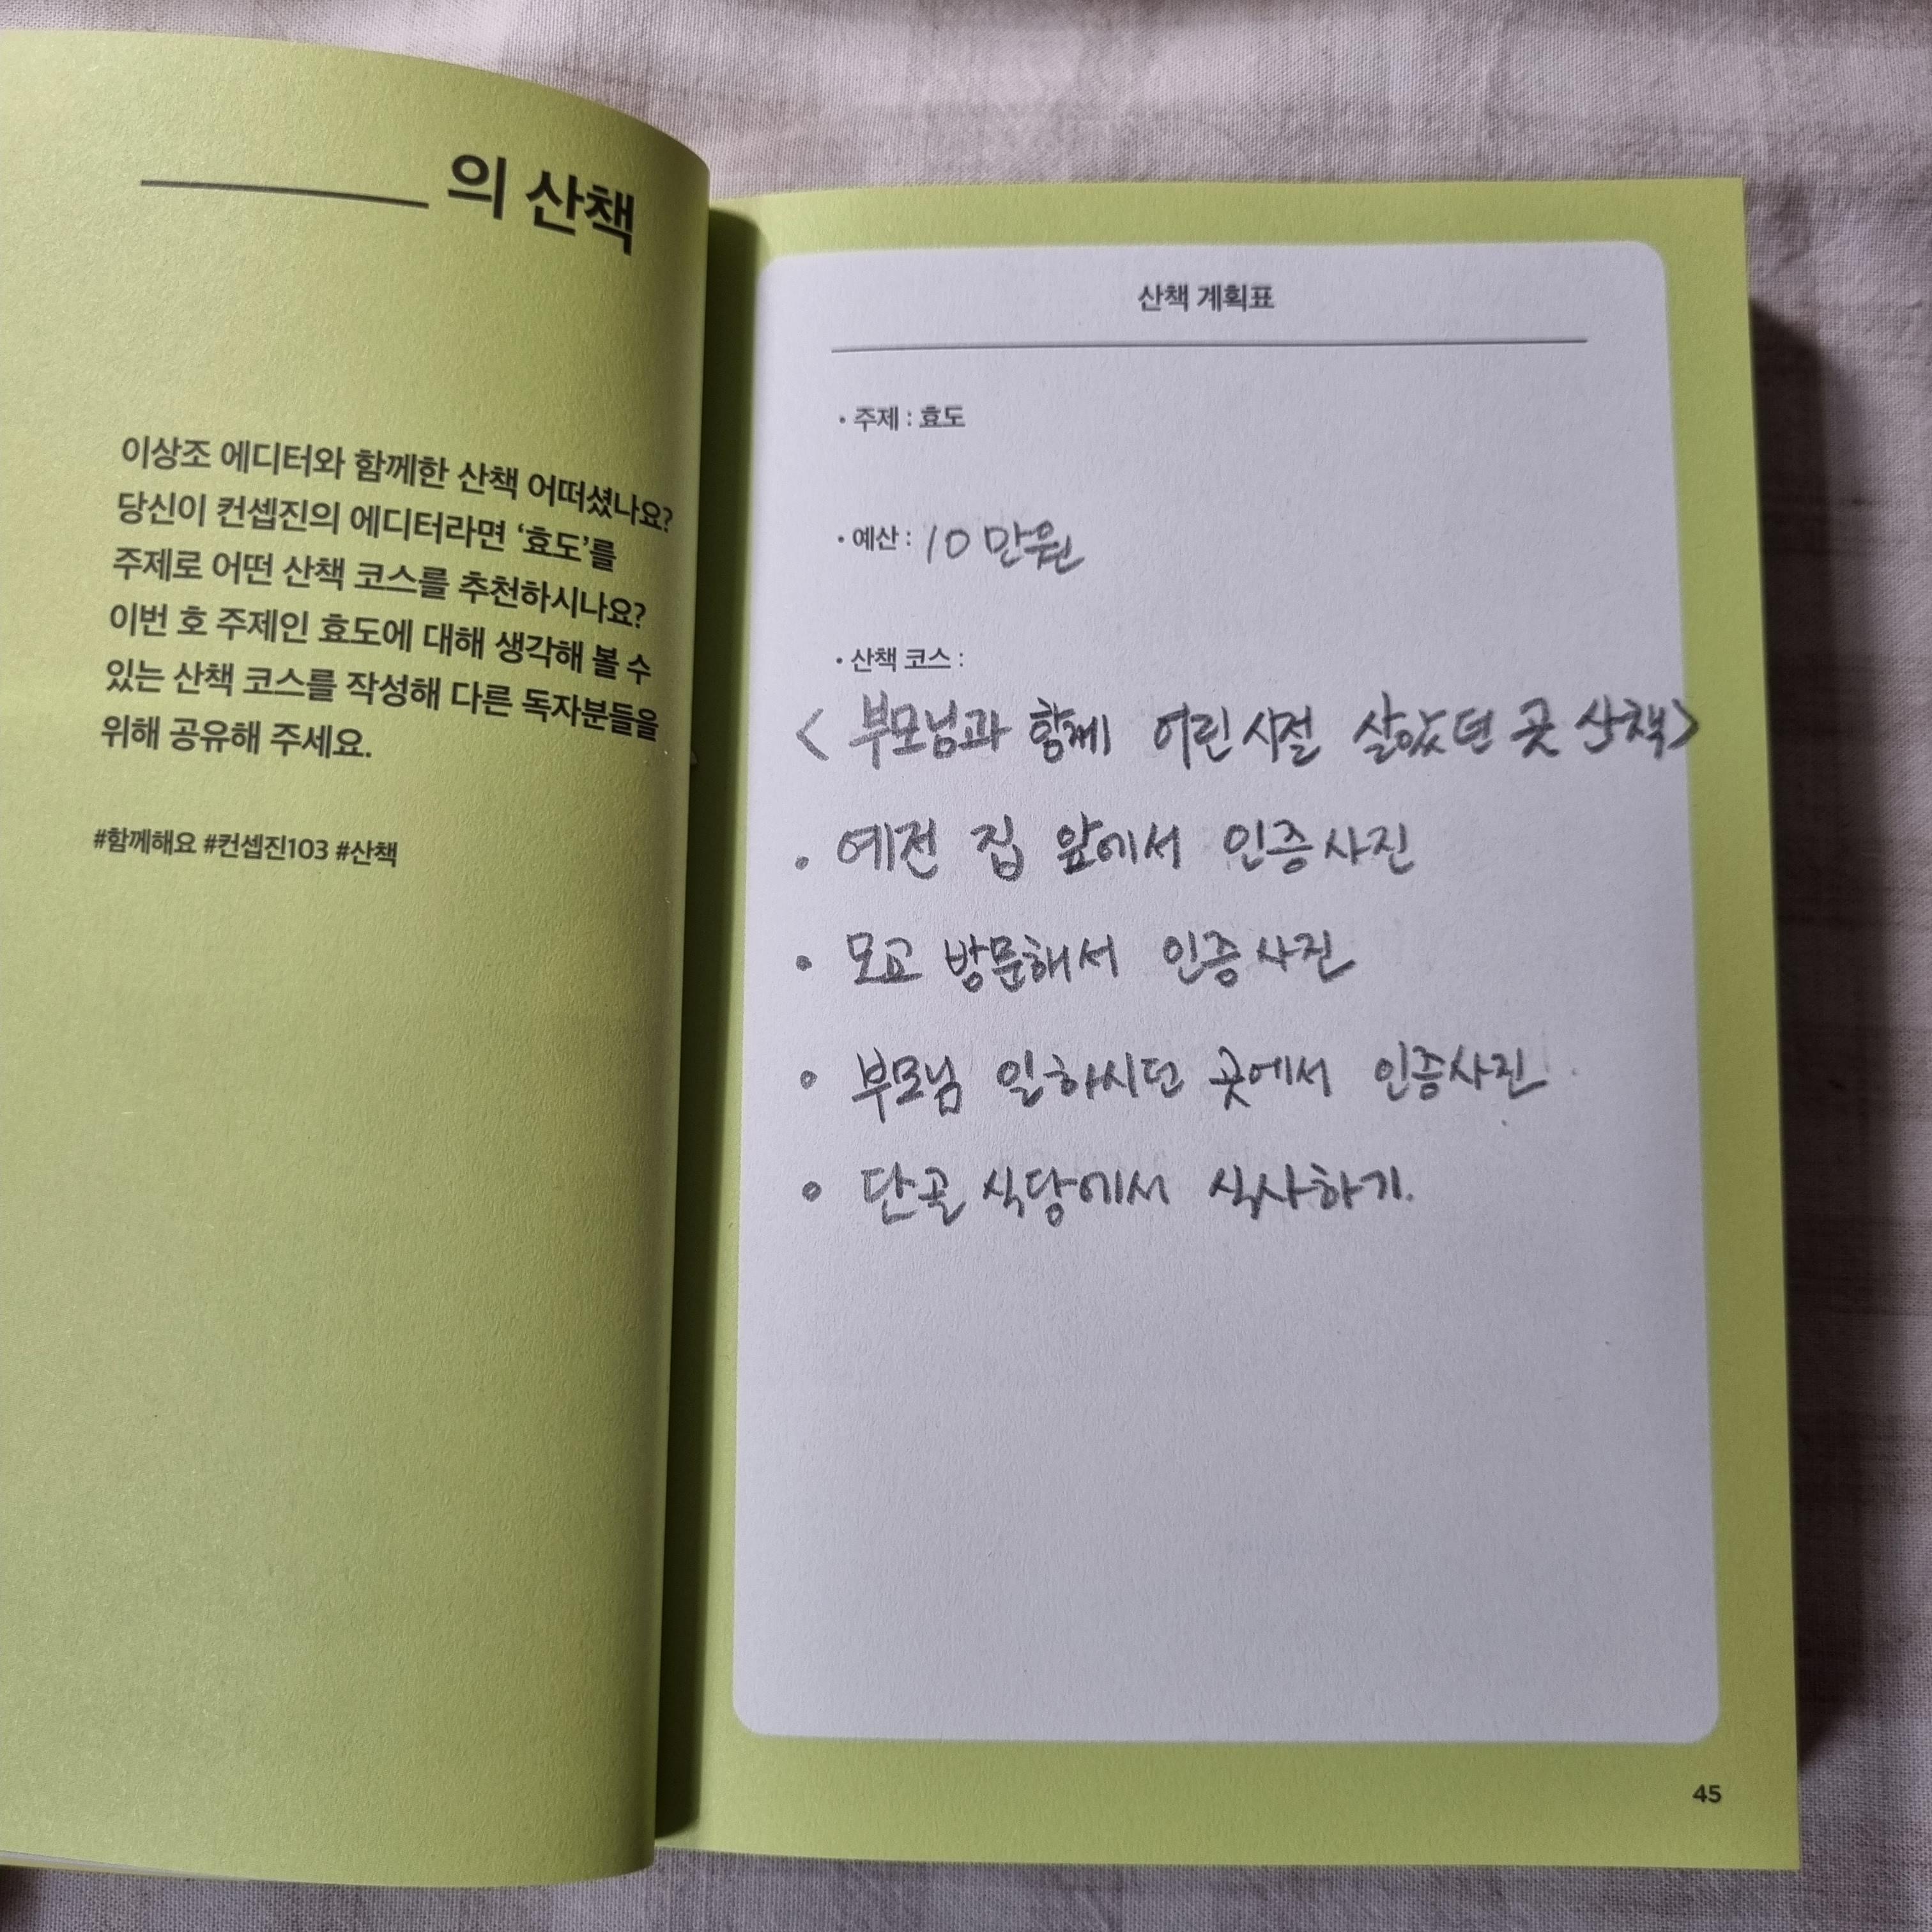 의 산책
이상조 에디터와 함께한 산책 어떠셨나요?
당신이 컨셉진의 에디터라면 ‘효도’를
주제로 어떤 산책 코스를 추천하시나요?
이번 호 주제인 효도에 대해 생각해 볼 수
있는 산책 코스를 작성해 다른 독자분들을
위해 공유해 주세요.
#함께해요 #컨셉진103 #산책
산책 계획표
• 주제 : 효도
• 예산 : 10만원
• 산책 코스 :
< 부모님과 함께 어린시절 살았던 곳 산책>
• 예전 집 앞에서 인증사진
• 모교 방문해서 인증사진
• 부모님 일하시던 곳에서 인증사진
• 단골 식당에서 식사하기.
45